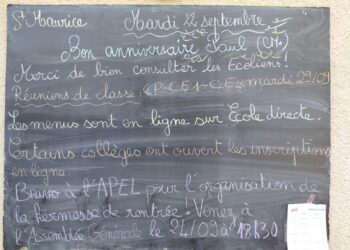 St Maurice
Mardi 22 septembre
Bon anniversaire Paul (CM1)
Merci de bien consulter les Ecoliens!
Réunions de classe: CP-CE1-CE2 mardi 29/09
Les menus sont en ligne sur Ecole directe.
Certains collèges ont ouvert les inscriptions
en ligne
Bravo à l'APEL pour l'organisation de
la kermesse de rentrée! Venez à
l'Assemblée Générale le 24/09 à 18h30